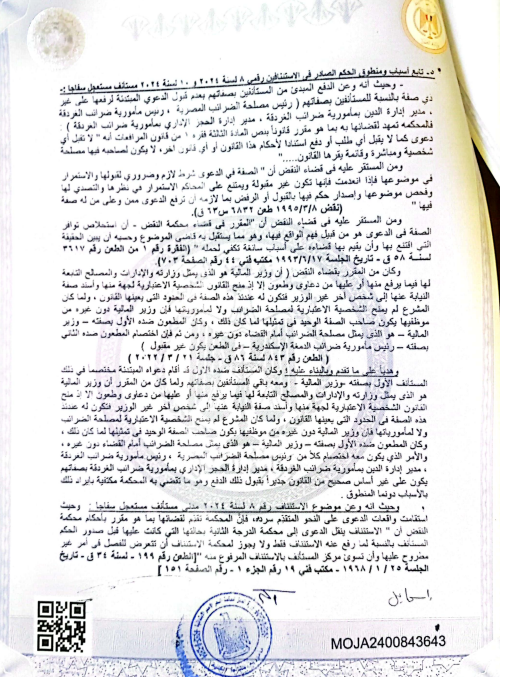 ٥- تابع أسباب ومنطوق الحكم الصادر فى الاستئنافين رقمى ٨ لسنة ٢٠٢٤ و ١٠ لسنة ٢٠٢٤ مستأنف مستعجل سفاجا :-
- وحيث أنه وعن الدفع المبدئ من المستأنفين بصفاتهم بعدم قبول الدعوي المبتدئة لرفعها على غير
ذي صفة بالنسبة للمستأنفين بصفاتهم ( رئيس مصلحة الضرائب المصرية ، رئيس مأمورية ضرائب الغردقة
، مدير إدارة الدين بمأمورية ضرائب الغردقة ، مدير إدارة الحجز الإداري بمأمورية ضرائب الغردقة ) :
فالمحكمه تمهد لقضائها به بما هو مقرر قانوناً بنص المادة الثالثة فقره ١ من قانون المرافعات أنه " لا تقبل أي
دعوى كما لا يقبل أي طلب أو دفع استنادا لأحكام هذا القانون أو أي قانون آخر، لا يكون لصاحبه فيها مصلحة
شخصية ومباشرة وقائمة يقرها القانون ....."
ومن المستقر عليه فى قضاء النقض أن " الصفة في الدعوى شرط لازم وضروري لقبولها والاستمرار
في موضوعها فإذا انعدمت فإنها تكون غير مقبولة ويمتنع على المحاكم الاستمرار في نظرها والتصدي لها
وفحص موضوعها وإصدار حكم فيها بالقبول أو الرفض بما لازمه أن ترفع الدعوى ممن وعلى من له صفة
فيها " (نقض ١٩٩٥/٣/٨ طعن ٦٨٣٢ س ٦٣ ق).
ومن المستقر عليه في قضاء النقض أن " المقرر فى قضاء محكمة النقض - أن استخلاص توافر
الصفة فى الدعوى هو من قبيل فهم الواقع فيها، وهو مما يستقل به قاضى الموضوع وحسبه أن يبين الحقيقة
التي اقتنع بها وأن يقيم بها قضاءه على أسباب سائغة تكفي لحمله " (الفقرة رقم ١ من الطعن رقم ٣٦١٧
لسنة ٥٨ ق - تاريخ الجلسة ١٩٩٣/٦/١٧ مكتب فني ٤٤ رقم الصفحة ٧٠٣)
وكان من المقرر بقضاء النقض ( أن وزير المالية هو الذي يمثل وزارته والإدارات والمصالح التابعة
لها فيما يرفع منها أو عليها من دعاوى وطعون إلا إذ منح القانون الشخصية الاعتبارية لجهة منها وأسند صفة
النيابة عنها إلى شخص آخر غير الوزير فتكون له عندئذ هذه الصفة فى الحدود التى يعينها القانون ، ولما كان
المشرع لم يمنح الشخصية الاعتبارية لمصلحة الضرائب ولا لمأمورياتها فإن وزير المالية دون غيره من
موظفيها يكون صاحب الصفة الوحيد فى تمثيلها لما كان ذلك ، وكان المطعون ضده الأول بصفته – وزير
المالية – هو الذى يمثل مصلحة الضرائب أمام القضاء دون غيره ، ومن ثم فإن اختصام المطعون ضده الثانى
بصفته – رئيس مأمورية ضرائب الدمغة الإسكندرية - فى الطعن يكون غير مقبول )
( الطعن رقم ٨٤٣ لسنة ٨٦ ق - جلسة ٢١ / ٣ / ٢٠٢٢ )
وهدياً على ما تقدم وبالبناء عليه : وكان المستأنف ضده الأول قد أقام دعواه المبتدئة مختصماً في ذلك
المستأنف الأول بصفته -وزير المالية - ومعه باقي المستأنفين بصفاتهم ولما كان من المقرر أن وزير المالية
هو الذي يمثل وزارته والإدارات والمصالح التابعة لها فيما يرفع منها أو عليها من دعاوى وطعون إلا إذ منح
القانون الشخصية الاعتبارية لجهة منها وأسند صفة النيابة عنها إلى شخص آخر غير الوزير فتكون له عندئذ
هذه الصفة فى الحدود التى يعينها القانون ، ولما كان المشرع لم يمنح الشخصية الاعتبارية لمصلحة الضرائب
ولا لمأمورياتها فإن وزير المالية دون غيره من موظفيها يكون صاحب الصفة الوحيد فى تمثيلها لما كان ذلك ،
وكان المطعون ضده الأول بصفته – وزير المالية – هو الذى يمثل مصلحة الضرائب أمام القضاء دون غيره ،
والأمر الذي يكون معه اختصام كلاً من رئيس مصلحة الضرائب المصرية ، رئيس مأمورية ضرائب الغردقة
، مدير إدارة الدين بمأمورية ضرائب الغردقة ، مدير إدارة الحجز الإداري بمأمورية ضرائب الغردقة بصفاتهم
يكون على غير أساس صحيح من القانون جديراً بقبول ذلك الدفع وهو ما تقضى به المحكمة مكتفية بإيراد ذلك
بالأسباب دونما المنطوق .
وحيث انه وعن موضوع الاستئناف رقم ٨ لسنة ٢٠٢٤ مدني مستأنف مستعجل سفاجا : وحيث
استقامت واقعات الدعوى على النحو المتقدم سرده، فإن المحكمه تقدم لقضائها بما هو مقرر بأحكام محكمة
النقض أن " الاستئناف ينقل الدعوى إلى محكمة الدرجة الثانية بحالتها التي كانت عليها قبل صدور الحكم
المستأنف بالنسبة لما رفع عنه الاستئناف فقط ولا يجوز لمحكمة الاستئناف أن تتعرض للفصل فى أمر غير
مطروح عليها وأن تسوئ مركز المستأنف بالاستئناف المرفوع منه "[الطعن رقم ١٩٩ - لسنة ٣٤ ق - تاريخ
الجلسة ٢٥ / ١ / ١٩٦٨ - مكتب فني ١٩ رقم الجزء ١ - رقم الصفحة ١٥١ ]
MOJA2400843643